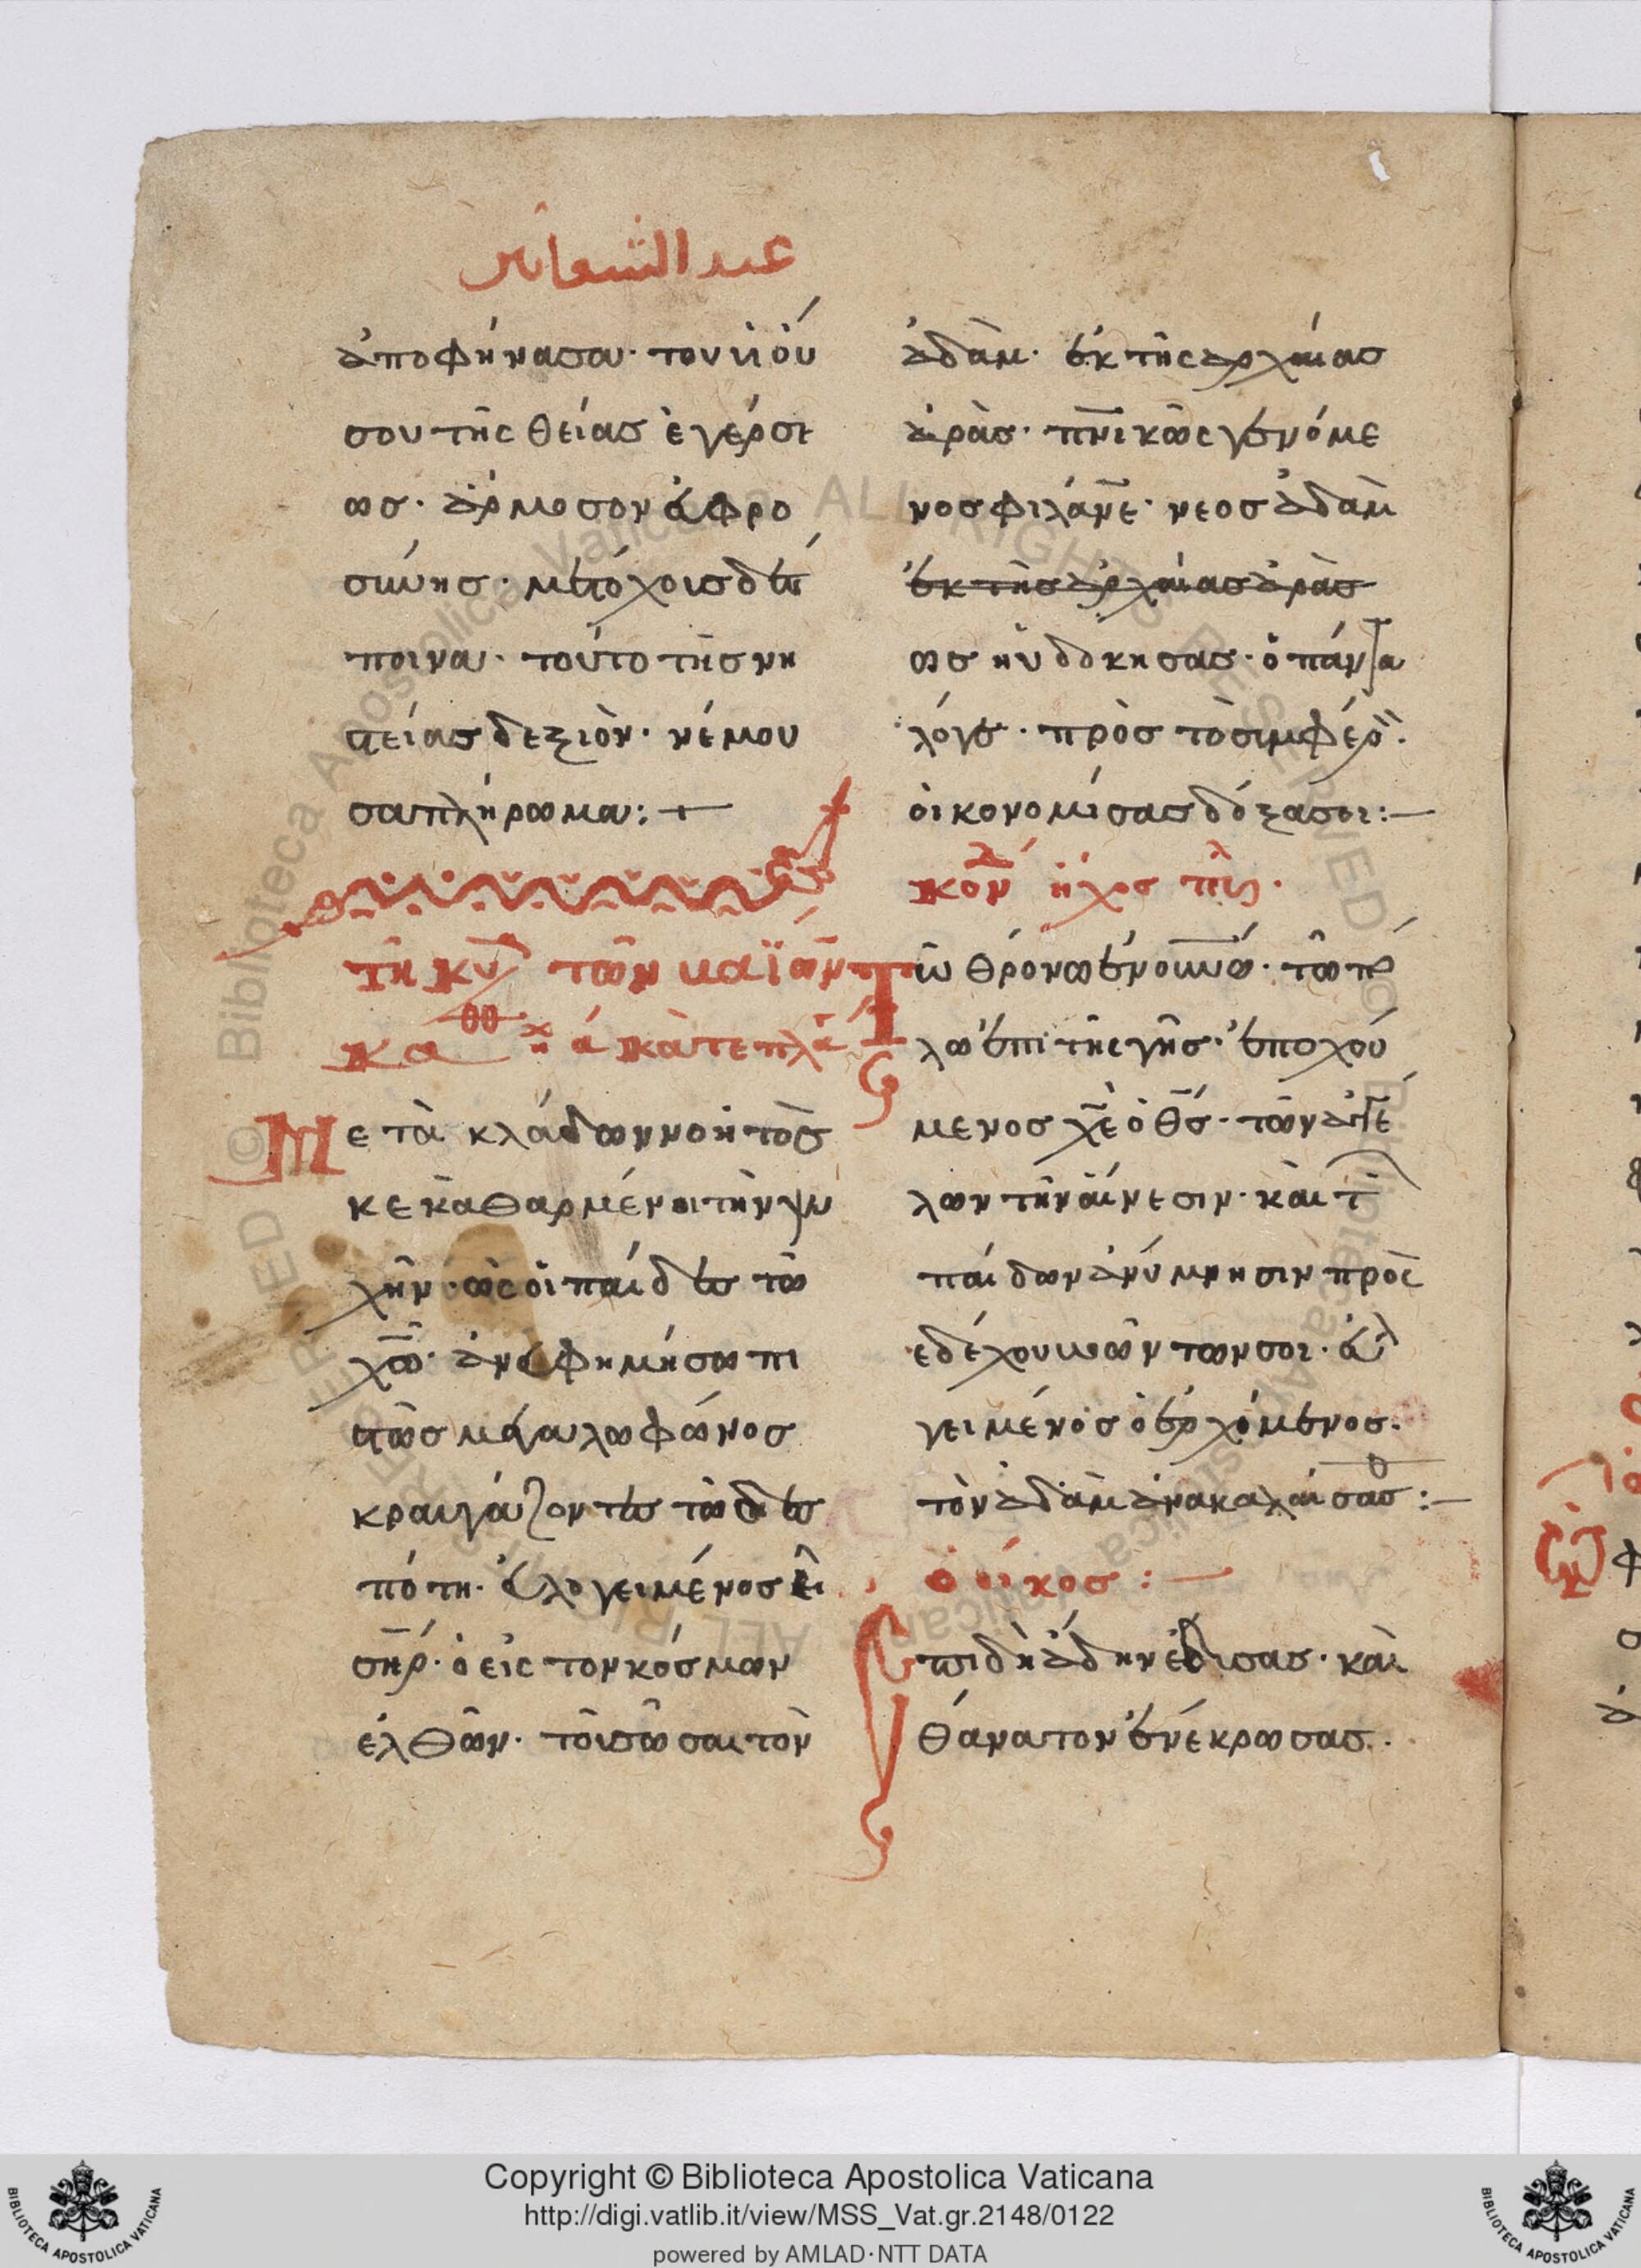 عيد الشعانين
ἀποφήνασα· τον υἱόν
σου τῆς θείας ἐγέρσε
ως· ἁρμοσον ἀφρο
σύνης· μετόχοις δέσ
ποινα· τούτο τῆς νη
στείας δεξιὸν· νέμου
σα πλήρωμα:+
τῆ κυ των βαϊων
μετὰ κλάδων νοητος
κεκαθαρμένοι τὴν ψυ
χὴν· ὡς οἱ παίδες τω
χω· ἀνεφημήσω πι
στῶς μεγαλωφώνος
κραυγάζοντες τῶ δεσ
πότη· εὐλογειμένος εἶ
σηρ· ὁ εἰς τον κόσμων
ἐλθῶν· τοῦ σῶσαι τὸν
ἀδὰμ· ἐκ τῆς ἀρχαίας
ἀρᾶς· πνικῶς γενόμε
νος φιλάνε· νεος ἀδὰμ
ἐκ τῆς ἀρχαίας ἀρὰς
ως ηὐδόκησας· ὁ πάντα
λόγε· πρὸς τὸ σιμφέρο·
οἰκονομίσας δόξα σοι:—
κον ἠχος πλ
Τῶ θρόνω ἐν οὐνω· τῶ πώ
λω ἐπι τῆς γῆς· ἐποχού
μενος χε ὁ θς· τῶν ἀγγέ
λων τὴν αἴνεσιν· καὶ τ
παίδων ἀνύμνησιν πρὸς
εδέχου βοῶντων σοι· εὐλ
γειμένος ὁ ἐρχόμενος·
τὸν ἀδὰμ ἀνακαλαίσασ:—
ὁ οίκος:—
Ἐπιδὴ ἅδην ἔδισας· καὶ
θάνατον ἐνέκρωσας·
Copyright © Biblioteca Apostolica Vaticana
http://digi.vatlib.it/view/MSS_Vat.gr.2148/0122
powered by AMLAD·NTT DATA
BIBLIOTECA APOSTOLICA VATICANA
BIBLIOTECA APOSTOLICA VATICANA